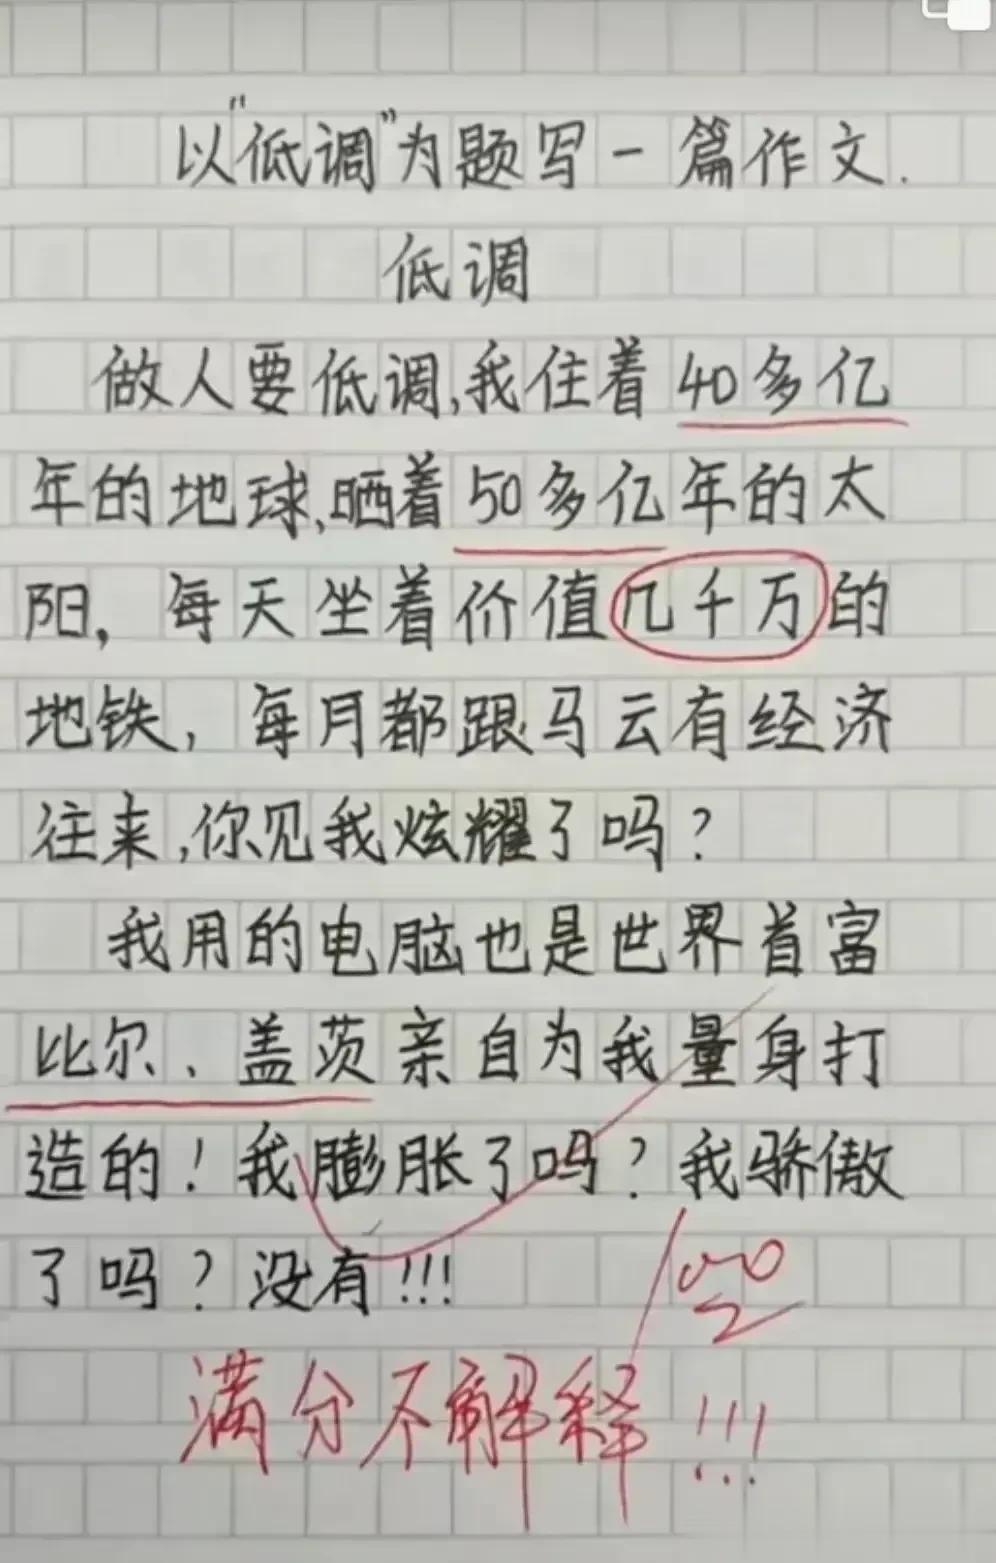 以"低调"为题写一篇作文.
低调
做人要低调,我住着40多亿
年的地球,晒着50多亿年的太
阳,每天坐着价值几千万的
地铁,每月都跟马云有经济
往来,你见我炫耀了吗?
我用的电脑也是世界首富
比尔、盖茨亲自为我量身打
造的!我膨胀了吗?我骄傲
了吗?没有!!!
100
满分不解释!!!